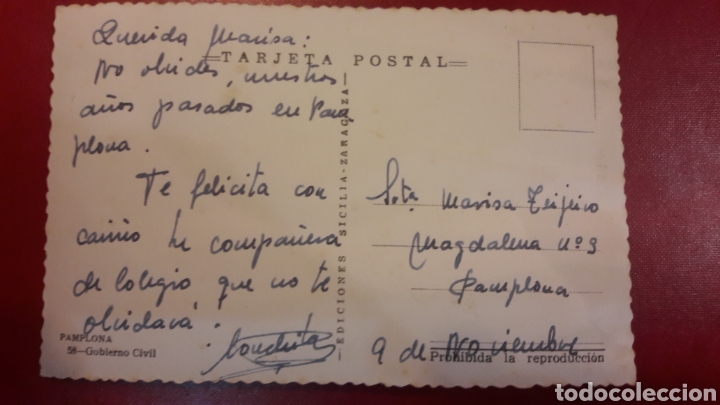 Querida Marisa:
=TARJETA POSTAL=
No olvides, nuestros
años pasados en Pam
plona.
Te felicita con
cariño tu compañera
de Colegio que no te
olvidará.
Conchita
EDICIONES SICILIA-ZARAGOZA
Srta. Marisa Teijeiro
Magdalena nº 3
Pamplona
9 de Noviembre
PAMPLONA
58—Gobierno Civil
Prohibida la reproducción
todocoleccion